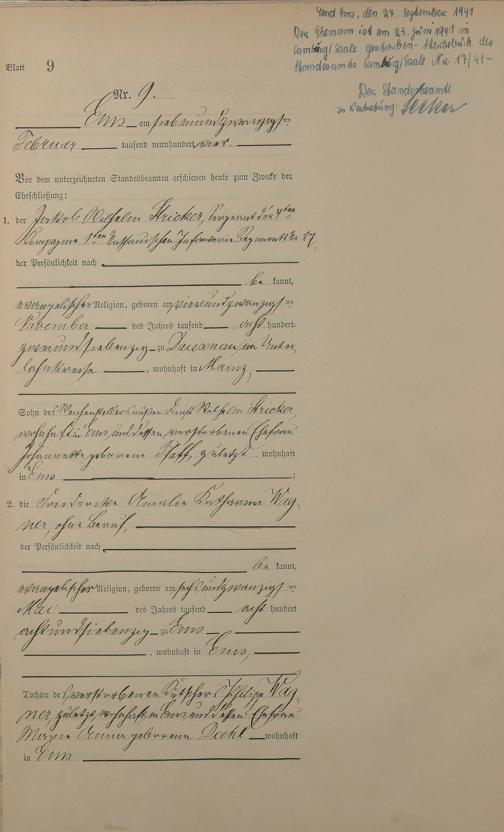 Bad Ems, den 27. September 1941
Der Ehemann ist am 23. Juni 1941 in
Camburg/Saale gestorben - Sterbebuch des
Standesamts Camburg/Saale Nr. 17/41 -
Der Standesbeamte
in Vertretung:
Blatt 9
Nr. 9.
Ems am siebenundzwanzigsten
Februar tausend neunhundert vier.
Vor dem unterzeichneten Standesbeamten erschienen heute zum Zwecke der
Eheschließung:
1. der Jakob Wilhelm Stricker, Sergeant der 4ten
Kompagnie 1sten Nassauischen Infanterie Regiments No 87,
der Persönlichkeit nach
be kannt,
evangelischer Religion, geboren am vierundzwanzigsten
November des Jahres tausend acht hundert
zweiundsiebenzig zu Dausenau im Unter,
lahnkreise, wohnhaft in Mainz,
Sohn des Weichenstellers außer Dienst Wilhelm Stricker,
wohnhaft in Ems und dessen verstorbenen Ehefrau
Johannette geborene Pfaff, zuletzt wohnhaft
in Ems;
2. die Friedericke Amalie Katharine Wag,
ner, ohne Beruf,
der Persönlichkeit nach
be kannt,
evangelischer Religion, geboren am sechsundzwanzigsten
Mai des Jahres tausend acht hundert
achtundsiebenzig zu Ems
, wohnhaft in Ems,
Tochter des verstorbenen Kutscher Philipp Wag,
ner zuletzt wohnhaft in Ems und dessen Ehefrau
Marie Anna geborene Diehl wohnhaft
in Ems